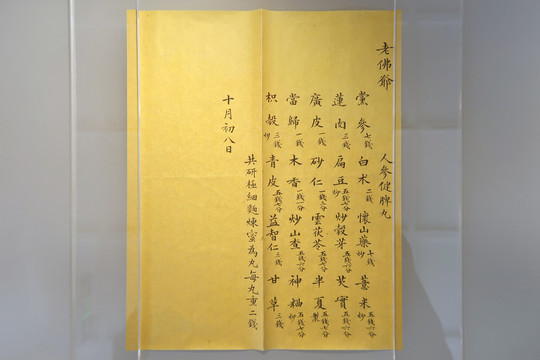 老佛爺
人參健脾丸
黨參七錢 白朮二錢 懷山藥炒十錢 薏米炒五錢六分
蓮肉三錢 扁豆炒五錢七分 炒穀芽五錢六分 芡實五錢六分
廣皮一錢 砂仁一錢二分 雲茯苓五錢七分 半夏製五錢七分
當歸一錢 木香一錢一分 炒山查五錢六分 神麯炒五錢七分
枳殼炒三錢 青皮五錢七分 益智仁三錢 甘草三錢
共研極細麵煉蜜為丸每丸重二錢
十月初八日